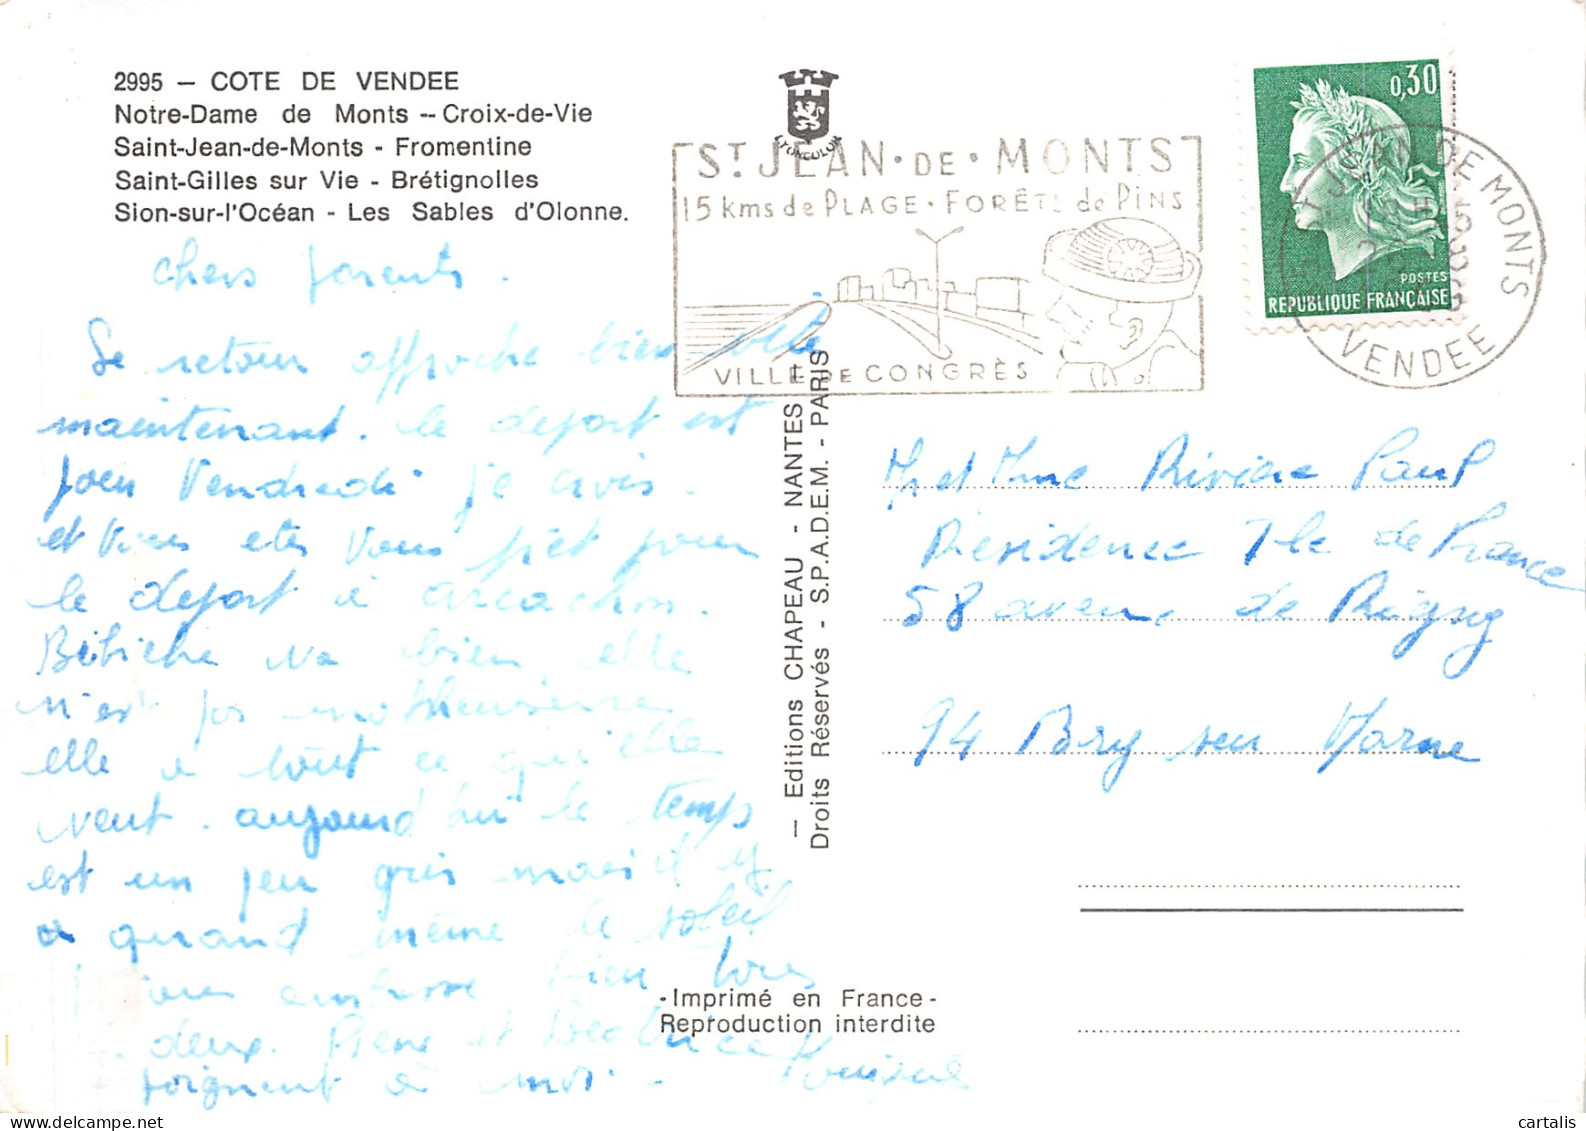 2995 — COTE DE VENDEE
Notre-Dame de Monts -- Croix-de-Vie
Saint-Jean-de-Monts - Fromentine
Saint-Gilles sur Vie - Brétignolles
Sion-sur-l'Océan - Les Sables d'Olonne.
chers parents.
Le retour approche bien vite
maintenant. le depart est
pour Vendredi je crois.
et vous etes vous prêt pour
le depart à arcachon.
Bibiche va bien elle
n'est pas malheureuse
elle a tout ce qu'elle
veut. aujourd'hui le temps
est un peu gris mais il y
a quand même le soleil
vous embrasse bien tous
deux. Pierre et Béatrice
joignent à moi.
LYONCOLOR
ST JEAN·DE·MONTS
15 kms de PLAGE·FORÊTS de PINS
VILLE DE CONGRÈS
0,30
POSTES
REPUBLIQUE FRANÇAISE
ST JEAN DE MONTS
VENDEE
— Editions CHAPEAU - NANTES
Droits Réservés - S.P.A.D.E.M. - PARIS
Mr et Mme Rivière Paul
Résidence Ile de France
58 avenue de Rigny
94 Bry sur Marne
-Imprimé en France-
Reproduction interdite
cartalis